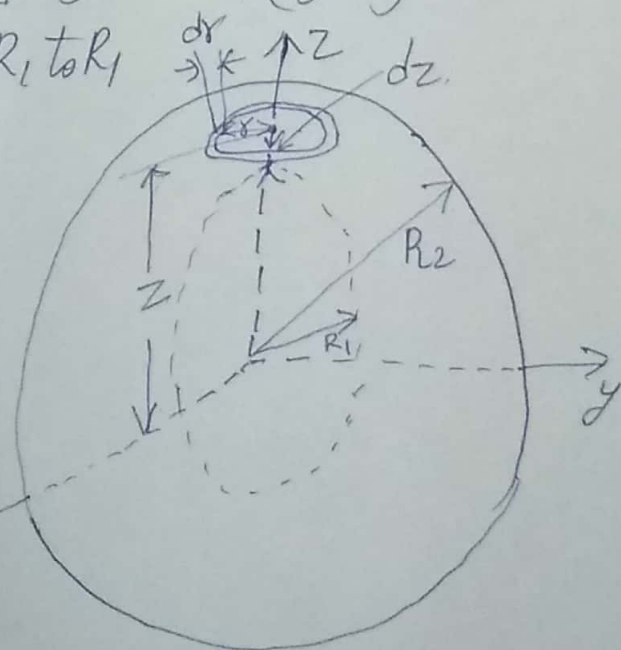 R₁ to R₁
dr
z
dz.
r
R₂
z
R₁
y